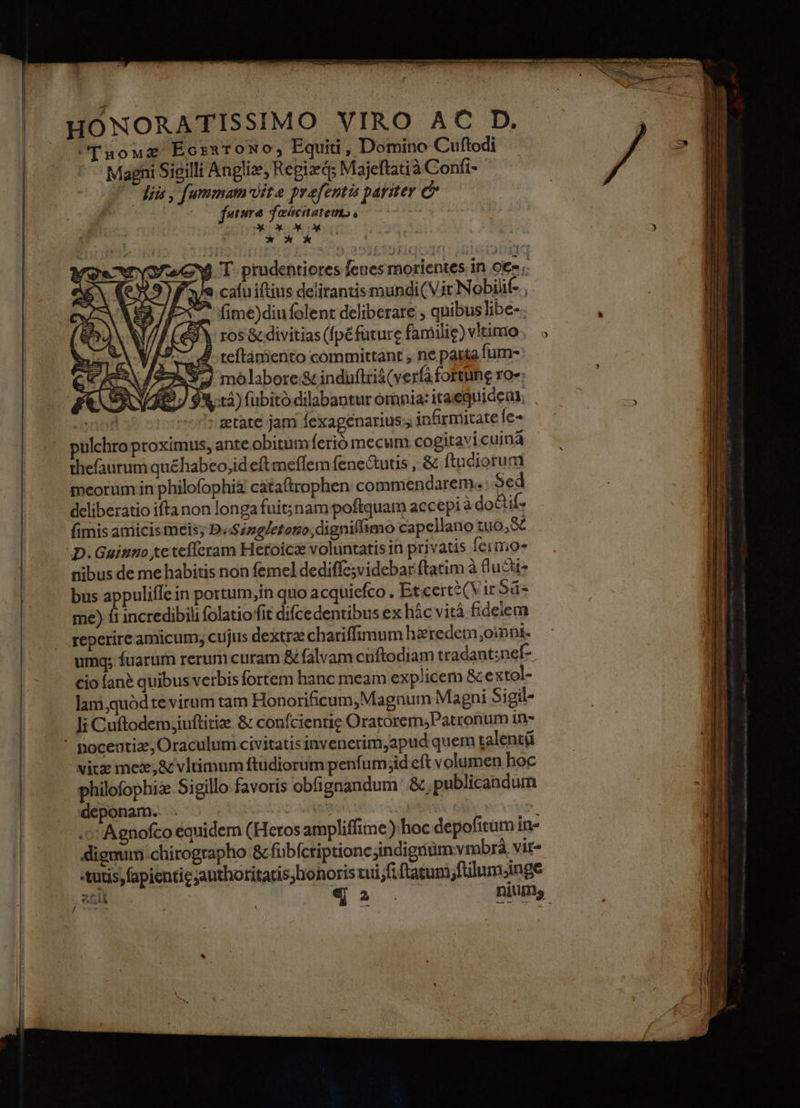 HONORATISSIMO VIRO AC D.
Thomæ Egertono, Equiti, Domino Cuſtodi
Magni Sigilli Angliæ, Regiæq; Majeſtati à Conſi-
liis, ſummam vitæ præſentis pariter &
futuræ fœlicitatem.
* * * *
* * *
T prudentiores ſenes morientes in oc-
caſu iſtius delirantis mundi (Vir Nobiliſ-
ſime) diu ſolent deliberare, quibus libe-
ros & divitias (ſpē future familię) vltimo
teſtamento committant, ne parta ſum-
mo labore & induſtriâ (versâ fortunę ro-
tâ) ſubitò dilabantur omnia: ita equidem,
ætate jam ſexagenarius, infirmitate ſe-
pulchro proximus, ante obitum ſeriò mecum cogitavi cuinā
theſaurum quē habeo, id eſt meſſem ſenectutis, & ſtudiorum
meorum in philoſophiâ cataſtrophen commendarem. Sed
deliberatio iſta non longa fuit; nam poſtquam accepi à doctiſ-
ſimis amicis meis; D. Singletono, digniſſimo capellano tuo, &
D. Guinno, te teſſeram Heroicæ voluntatis in privatis ſermo-
nibus de me habitis non ſemel dediſſe; videbar ſtatim à fluctí-
bus appuliſſe in portum, in quo acquieſco. Et certè (Vir Sū-
me) ſi incredibili ſolatio fit diſcedentibus ex hâc vitâ fidelem
reperire amicum; cujus dextræ chariſſimum hæredem, omni-
umq; ſuarum rerum curam & ſalvam cuſtodiam tradant: neſ-
cio ſanè quibus verbis ſortem hanc meam explicem & extol-
lam, quòd te virum tam Honorificum, Magnum Magni Sigil-
li Cuſtodem, iuſtitiæ & conſcientię Oratorem, Patronum in-
nocentiæ, Oraculum civitatis invenerim, apud quem talentū
vitæ meæ, & vltimum ſtudiorum penſum; id eſt volumen hoc
philoſophiæ Sigillo favoris obſignandum & publicandum
deponam.
Agnoſco equidem (Heros ampliſſime) hoc depoſitum in-
dignum chirographo & ſubſcriptione, indignum vmbrâ vir-
tutis, ſapientię, authoritatis, honoris tui, ſi ſtatum, ſtilum, inge
¶ 2 nium,